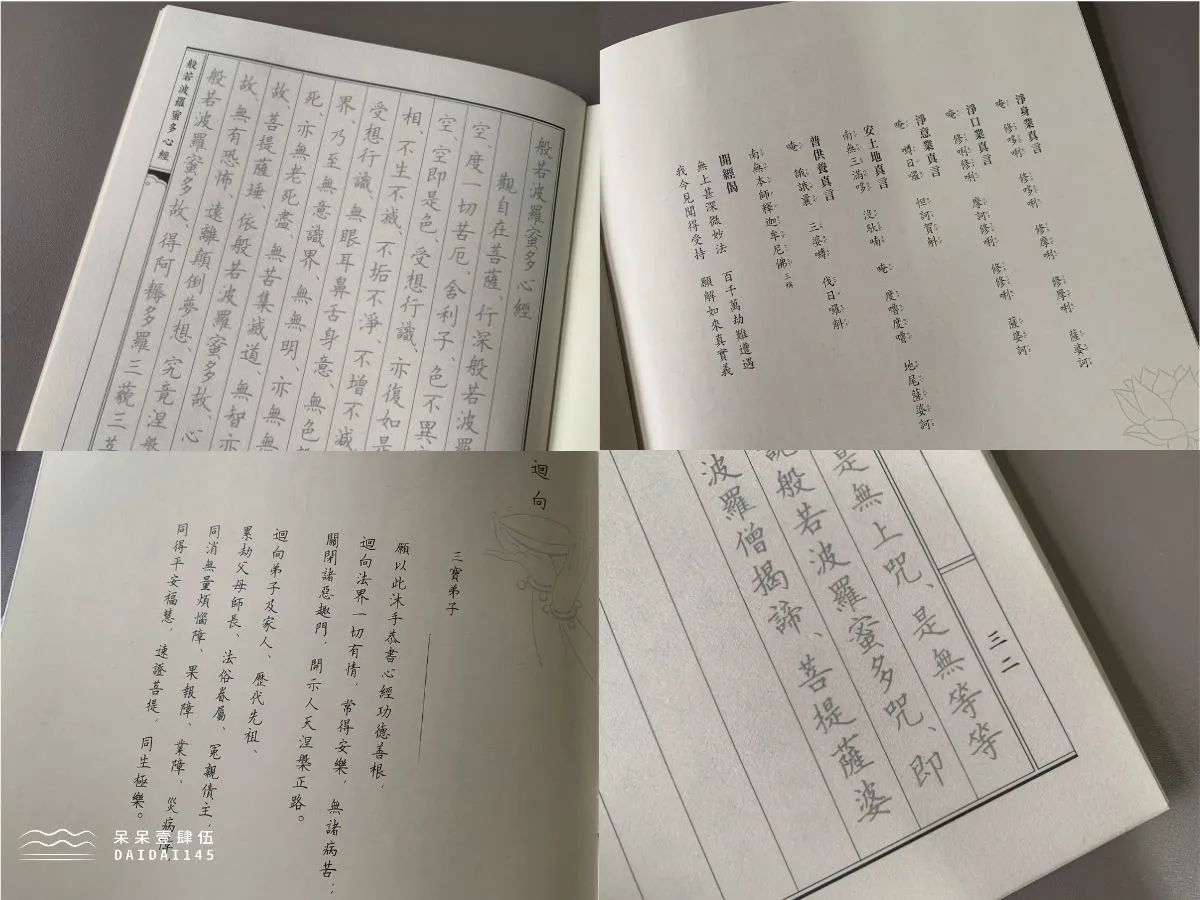 般若波羅蜜多心經
觀自在菩薩、行深般若波羅
空、度一切苦厄、舍利子、色不異
空、空即是色、受想行識、亦復如是
相、不生不滅、不垢不淨、不增不減
受想行識、無眼耳鼻舌身意、無色
界、乃至無意識界、無無明、亦無無
死、亦無老死盡、無苦集滅道、無智亦
故、菩提薩埵、依般若波羅蜜多故、心
故、無有恐怖、遠離顛倒夢想、究竟涅槃
般若波羅蜜多故、得阿耨多羅三藐三菩
般若波羅蜜多心經
淨身業真言
唵 修哆唎 修哆唎 修摩唎 修摩唎 薩婆訶
淨口業真言
唵 修唎修唎 摩訶修唎 修修唎 薩婆訶
淨意業真言
唵 嚩日囉 怛訶賀斛
安土地真言
南無三滿哆 沒馱喃 唵 度嚕度嚕 地尾薩婆訶
普供養真言
唵 誐誐曩 三婆嚩 伐日囉斛
南無本師釋迦牟尼佛 三稱
開經偈
無上甚深微妙法 百千萬劫難遭遇
我今見聞得受持 願解如來真實義
迴向
三寶弟子
願以此沐手恭書心經功德善根，
迴向法界一切有情，常得安樂，無諸病苦；
關閉諸惡趣門，開示人天涅槃正路。
迴向弟子及家人、歷代先祖、
累劫父母師長、法俗眷屬、冤親債主，
同消無量煩惱障、果報障、業障、災病障，
同得平安福慧，速證菩提，同生極樂。
三二
是無上咒、是無等等
說般若波羅蜜多咒、即
波羅僧揭諦、菩提薩婆
呆呆壹肆伍
DAIDAI145